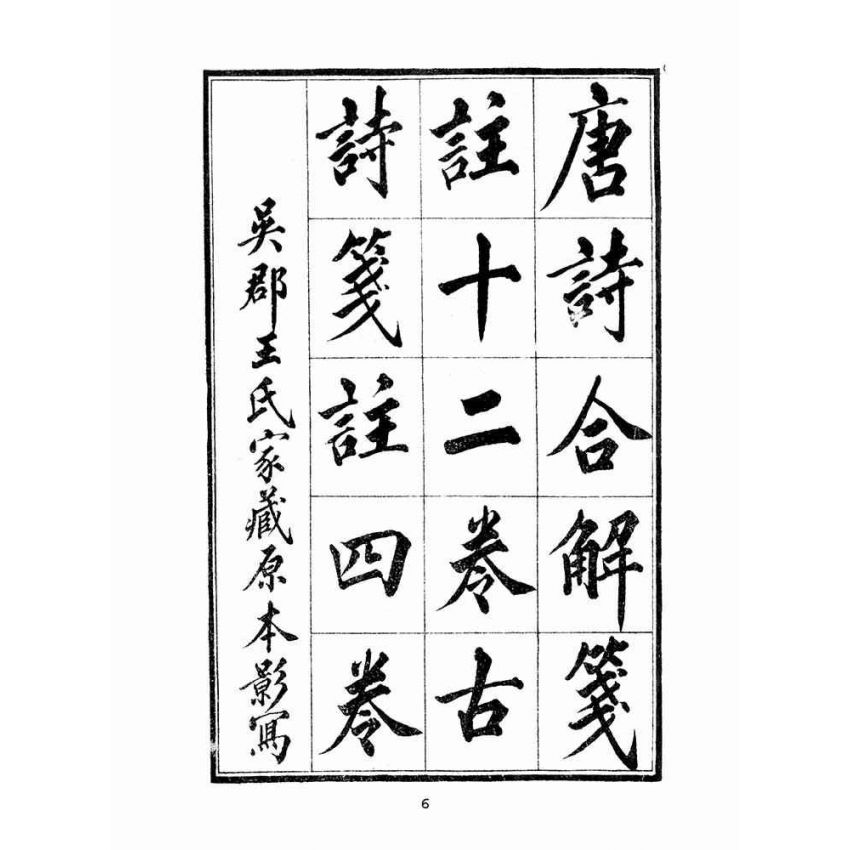 唐詩合解箋
註十二卷古
詩箋註四卷
吳郡王氏家藏原本影寫
6